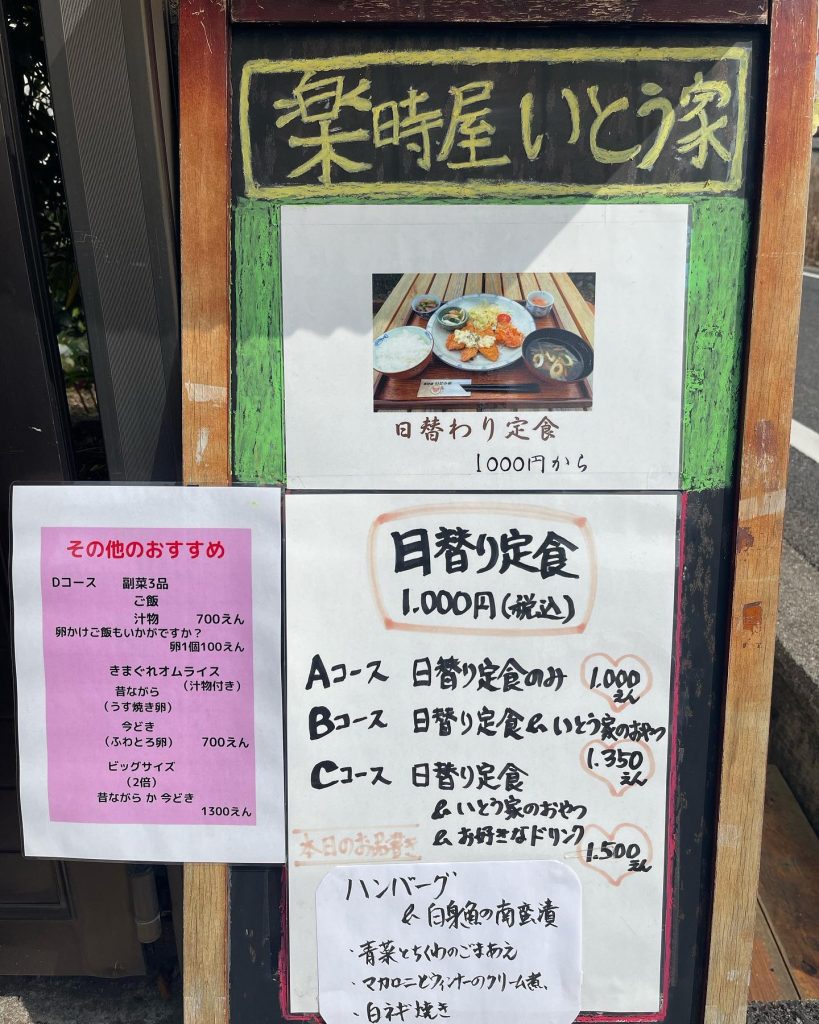 楽時屋いとう家
日替わり定食
1000円から
日替り定食
1.000円(税込)
Aコース 日替り定食のみ 1.000えん
Bコース 日替り定食&いとう家のおやつ
1.350えん
Cコース 日替り定食
&いとう家のおやつ
&お好きなドリンク
1.500えん
本日のお品書き
ハンバーグ
&白身魚の南蛮漬
・青菜とちくわのごまあえ
・マカロニとウィンナーのクリーム煮、
・白ネギ焼き
その他のおすすめ
Dコース 副菜3品
ご飯
汁物 700えん
卵かけご飯もいかがですか？
卵1個100えん
きまぐれオムライス
(汁物付き)
昔ながら
(うす焼き卵)
今どき
(ふわとろ卵) 700えん
ビッグサイズ
(2倍)
昔ながら か 今どき
1300えん